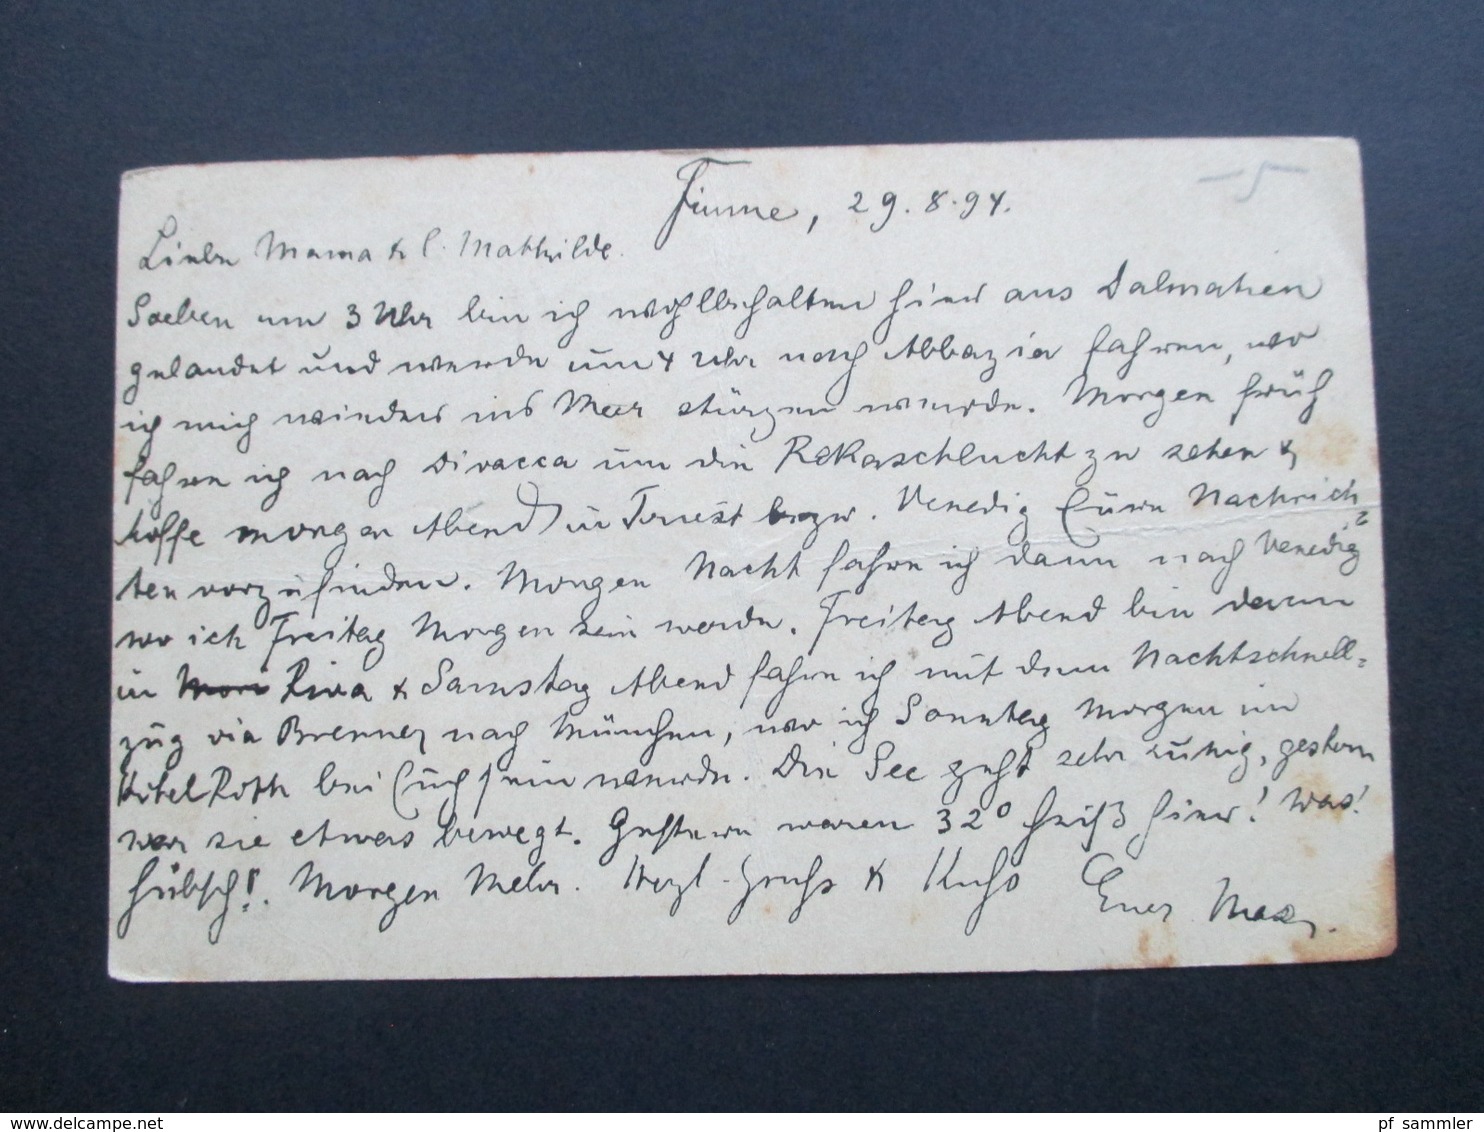 — 5 —
Fiume, 29.8.94.
Liebe Mama & l. Mathilde.
Soeben um 3 Uhr bin ich wohlbehalten hier aus Dalmatien
gelandet und werde um 4 Uhr nach Abbazia fahren, wo
ich mich wieder ins Meer stürzen werde. Morgen früh
fahre ich nach Divacca um die Rekaschlucht zu sehen &
hoffe morgen Abend in Triest bezw. Venedig Eure Nachrich-
ten vorzufinden. Morgen Nacht fahre ich dann nach Venedig
wo ich Freitag Morgen sein werde. Freitag Abend bin dann
in Riva & Samstag Abend fahre ich mit dem Nachtschnell-
zug via Brenner nach München, wo ich Sonntag Morgen im
Hotel Roth bei Euch sein werde. Die See geht sehr ruhig, gestern
war sie etwas bewegt. Gestern waren 32° heiß hier! Was!
hübsch!. Morgen Mehr. Herzl. Gruss & Kuss Euer Max.
pf_sammler